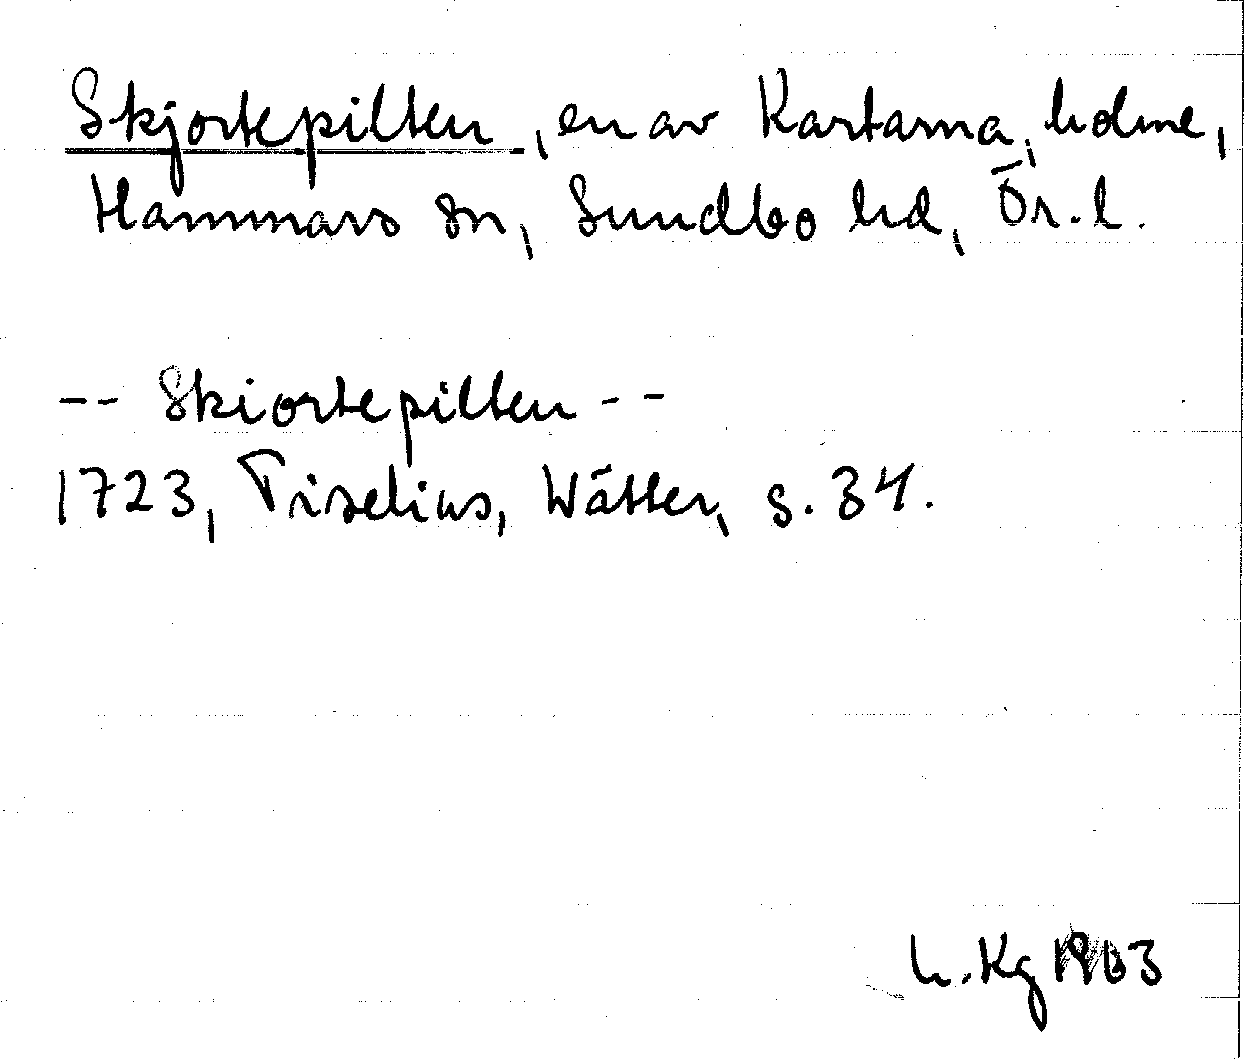 Skjortepilten, en av Kartarna, holme,
Hammars sn, Sundbo hd, Ör. l.
-- Skiortepilten --
1723, Tiselius, Wätter, s. 34.
h. Kg 1963